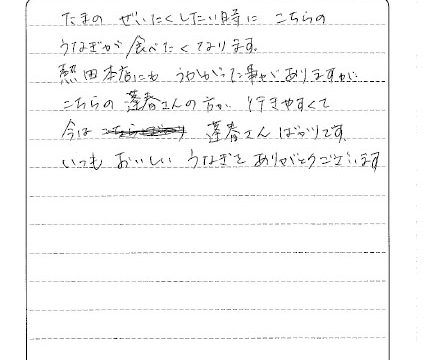 たまの ぜいたくしたい時に こちらの
うなぎが 食べたくなります。
熱田本店にも うかがった事がありますが
こちらの 蓬春さんの方が 行きやすくて
今は 蓬春さん ばかりです。
いつも おいしい うなぎを ありがとうございます